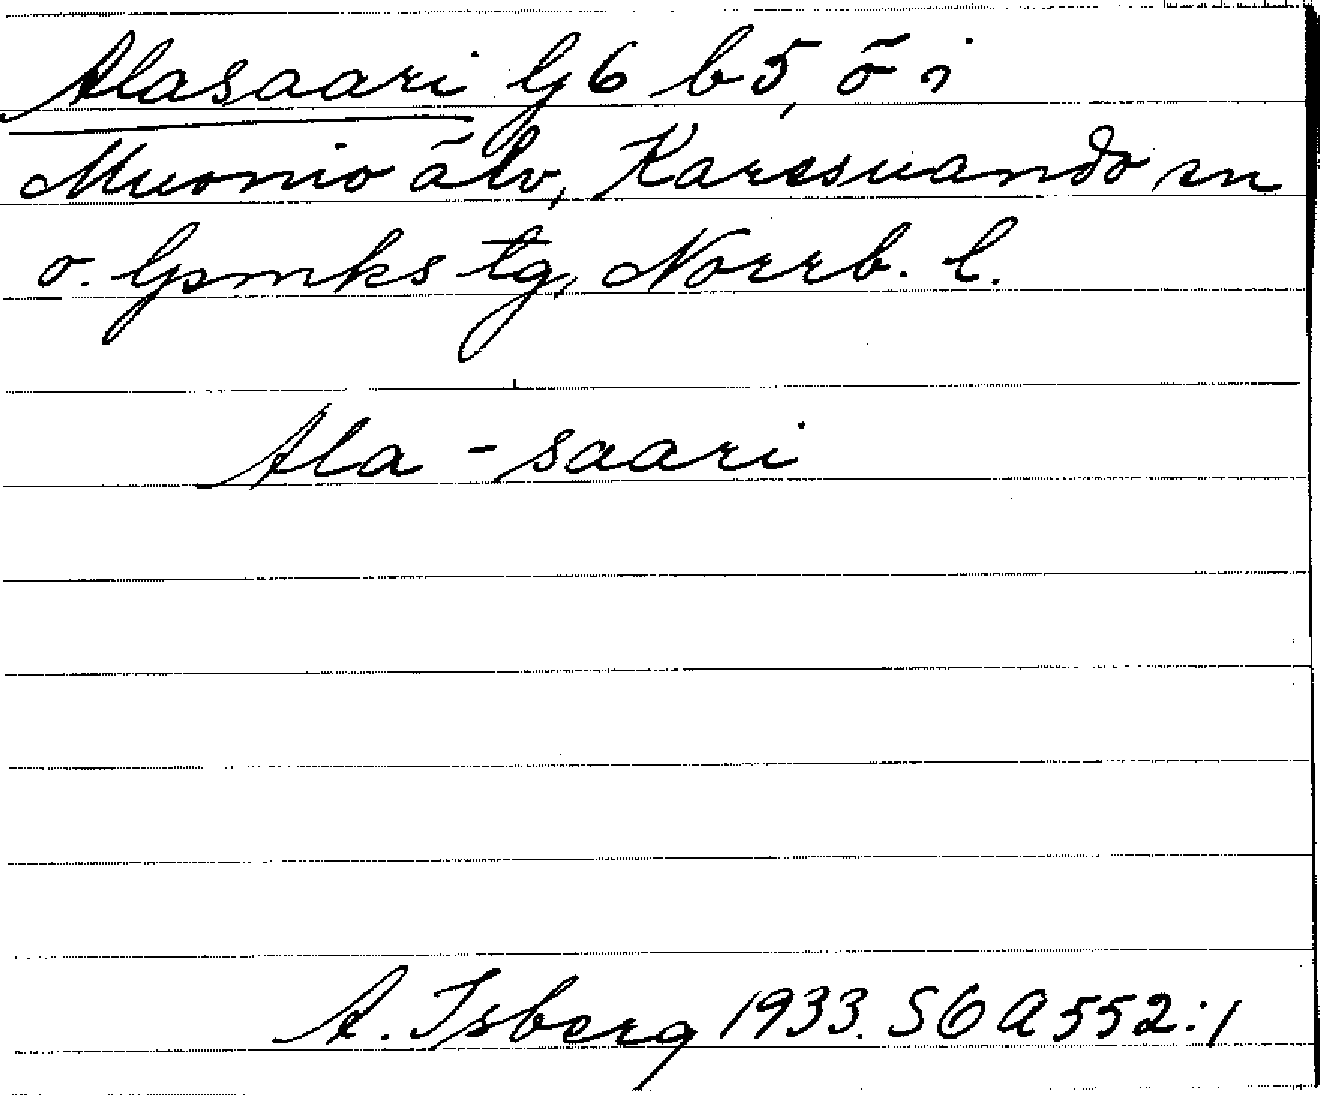 Alasaari G6 b5, ö i
Muonio älv, Karesuando sn
o. lpmks tg, Norrb. l.
Ala - saari
A. Isberg 1933. SOA552:1